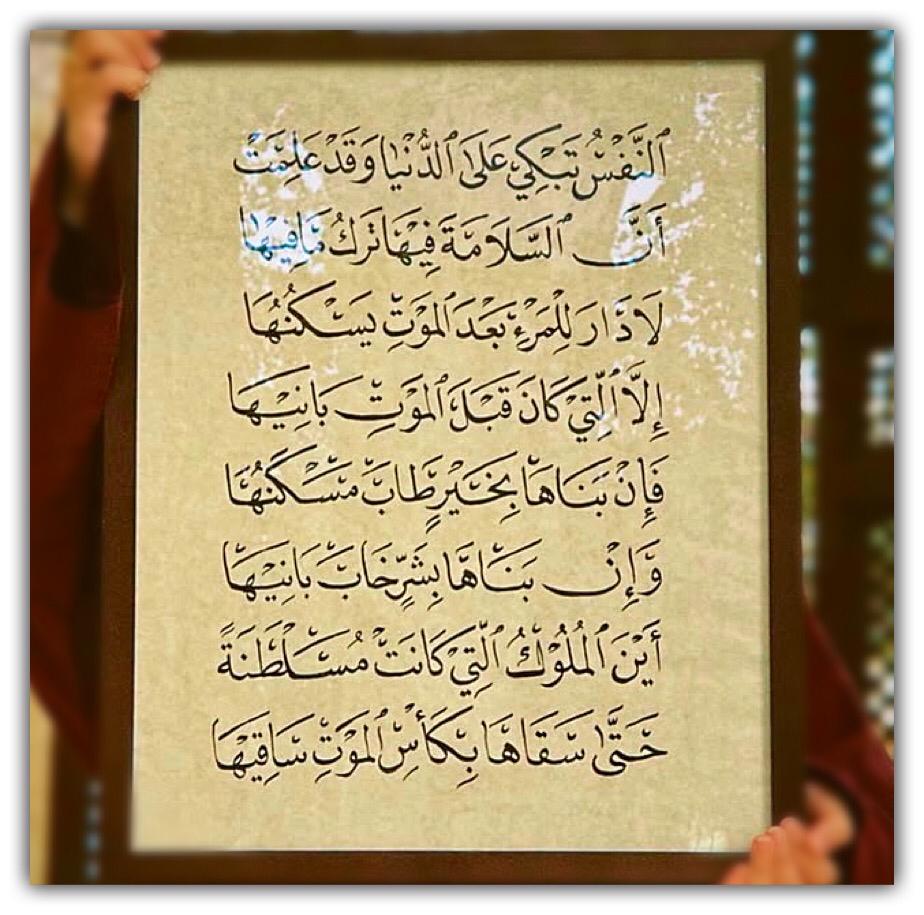 ٱلنَّفْسُ تَبْكِي عَلَى ٱلدُّنْيَا وَقَدْ عَلِمَتْ
أَنَّ ٱلسَّلَامَةَ فِيهَا تَرْكُ مَافِيهَا
لَا دَارَ لِلْمَرْءِ بَعْدَ ٱلْمَوْتِ يَسْكُنُهَا
إِلَّا ٱلَّتِي كَانَ قَبْلَ ٱلْمَوْتِ بَانِيهَا
فَإِنْ بَنَاهَا بِخَيْرٍ طَابَ مَسْكَنُهَا
وَإِنْ بَنَاهَا بِشَرٍّ خَابَ بَانِيهَا
أَيْنَ ٱلْمُلُوكُ ٱلَّتِي كَانَتْ مُسَلْطَنَةً
حَتَّى سَقَاهَا بِكَأْسِ ٱلْمَوْتِ سَاقِيهَا